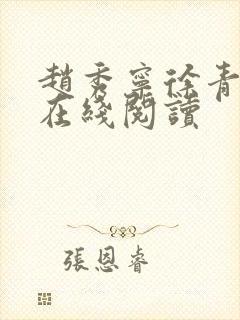 趙秀寧徐青
在綫閱讀
張恩睿